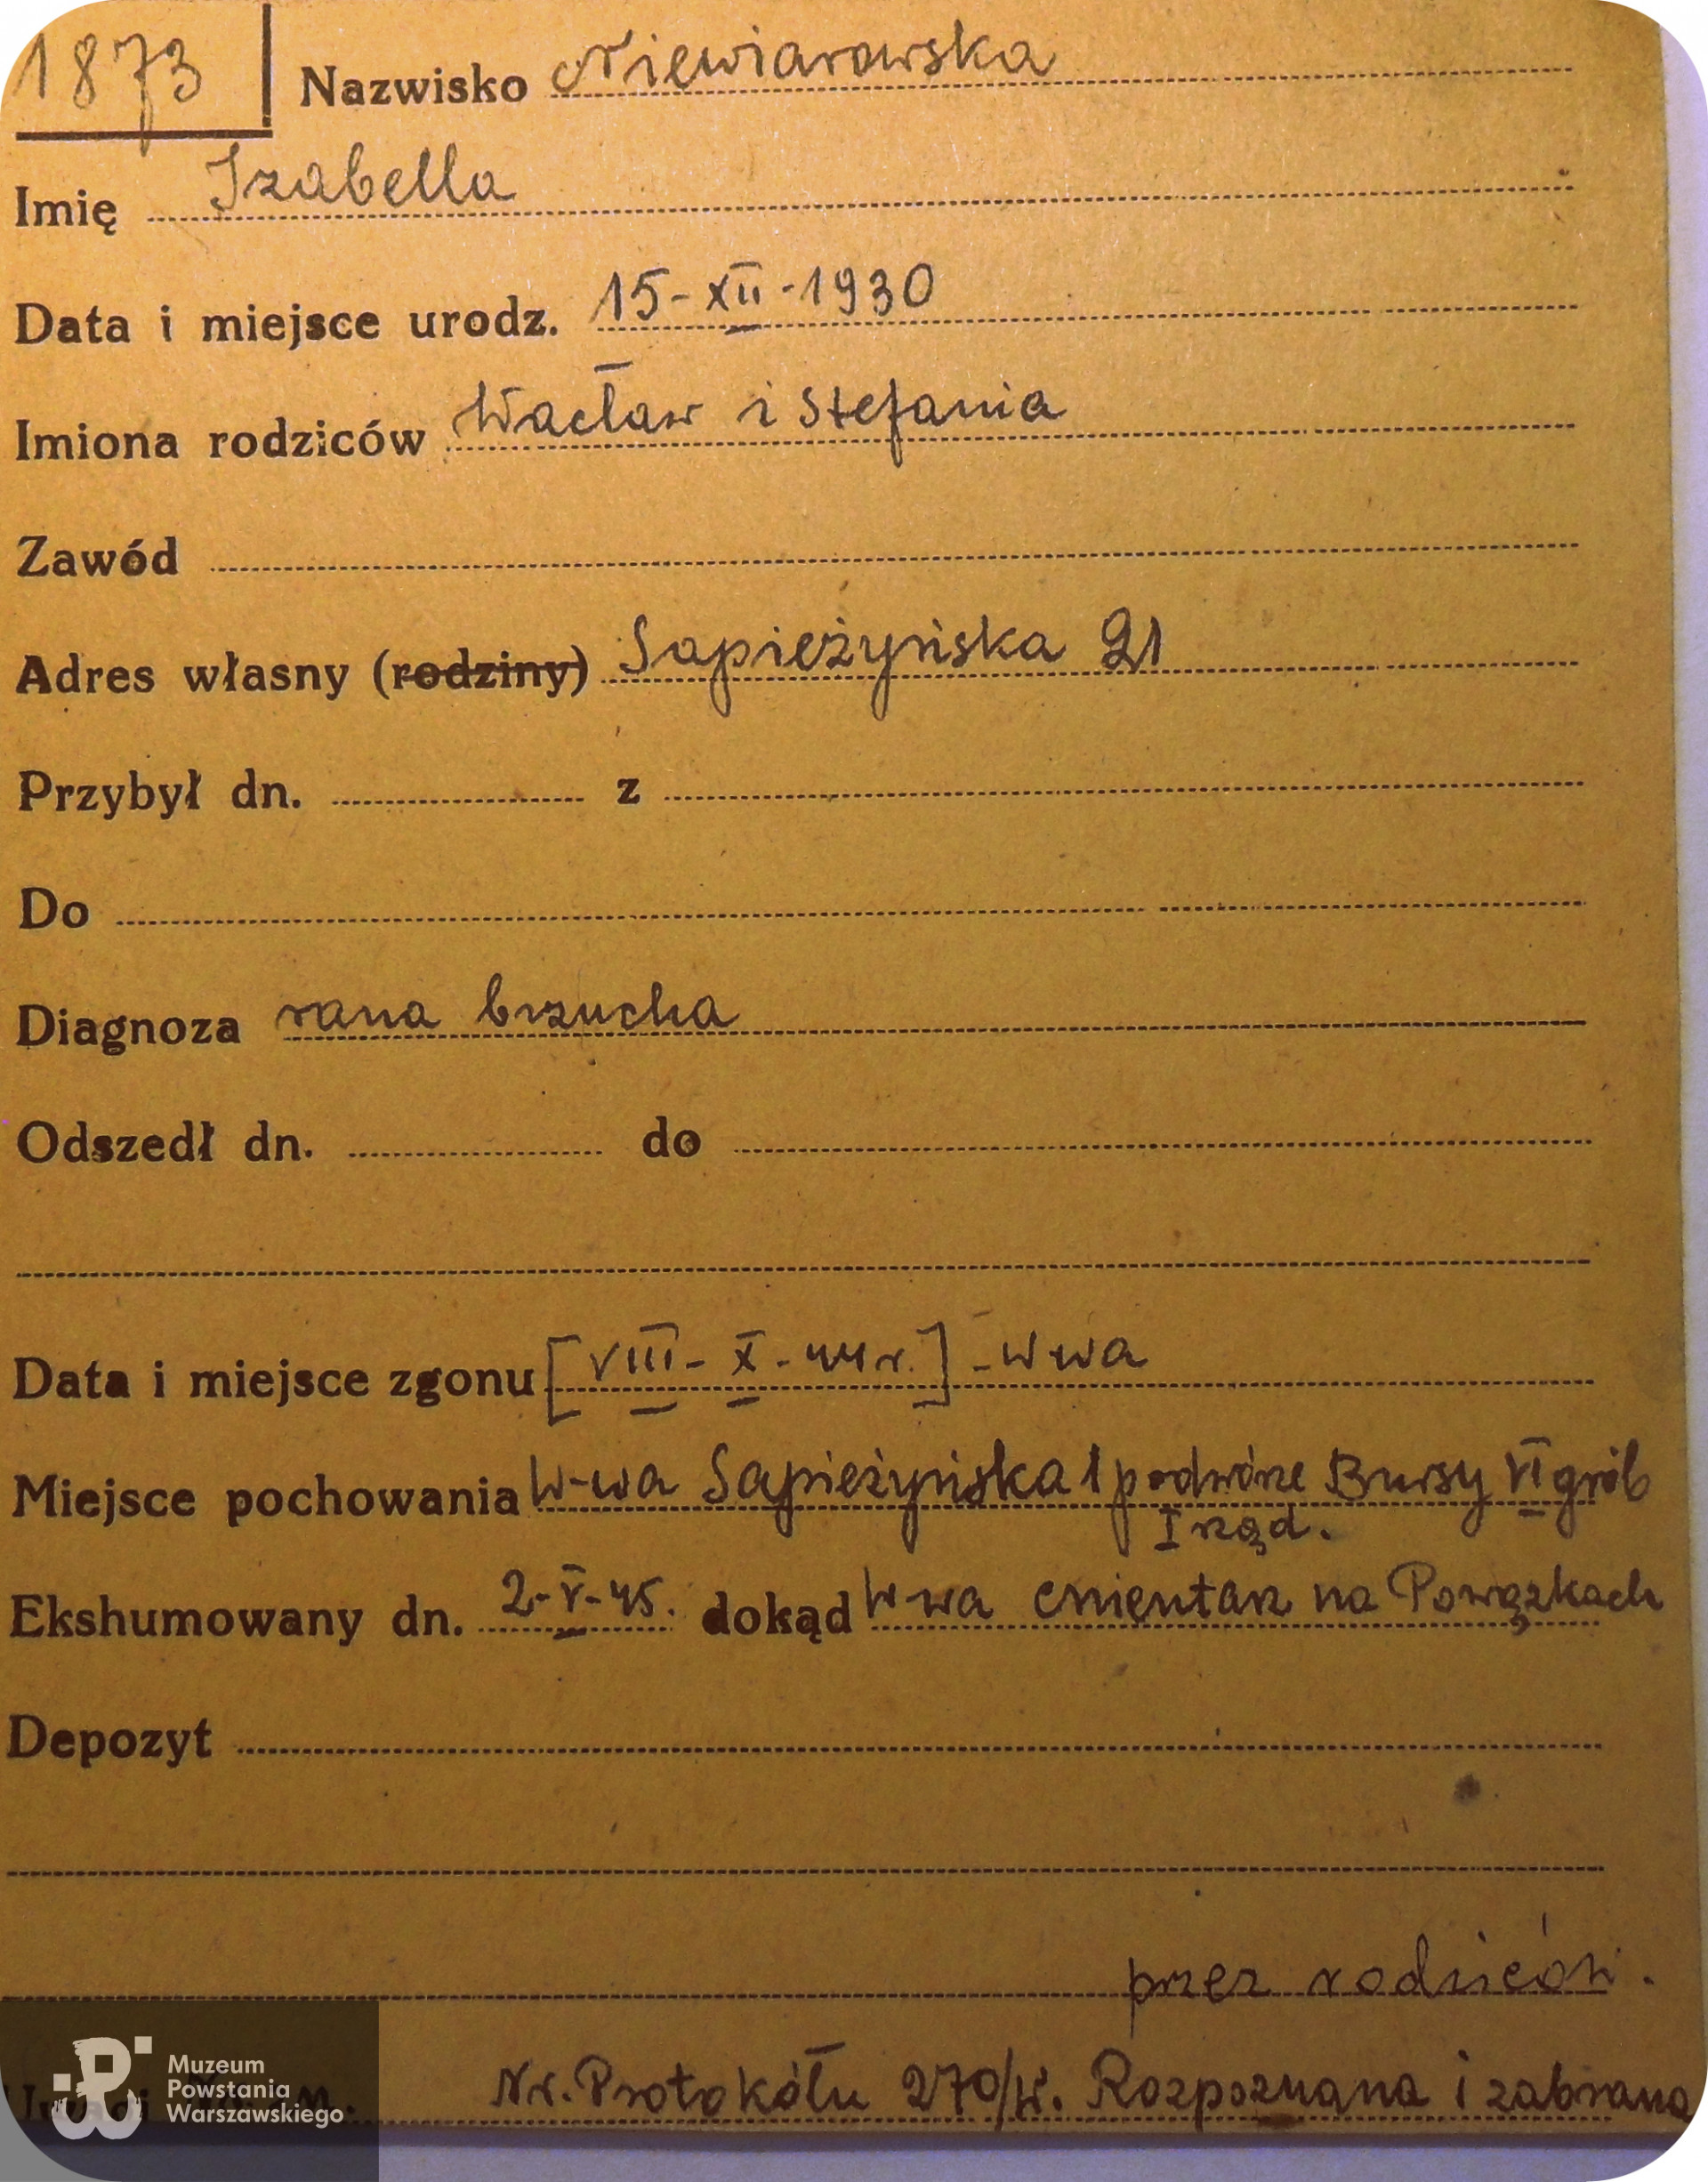 1873
Nazwisko Niewiarowska
Imię Izabella
Data i miejsce urodz. 15-XII-1930
Imiona rodziców Wacław i Stefania
Zawód
Adres własny (rodziny) Sapieżyńska 21
Przybył dn. z
Do
Diagnoza rana brzucha
Odszedł dn. do
Data i miejsce zgonu [VIII-X-44r.] - W-wa
Miejsce pochowania W-wa Sapieżyńska 1 podwórze Bursy VI grób
I rząd.
Ekshumowany dn. 2-V-45. dokąd W-wa cmentarz na Powązkach
Depozyt
przez rodziców.
Uwagi Nr. Protokółu 270/W. Rozpoznana i zabrana
Muzeum
Powstania
Warszawskiego